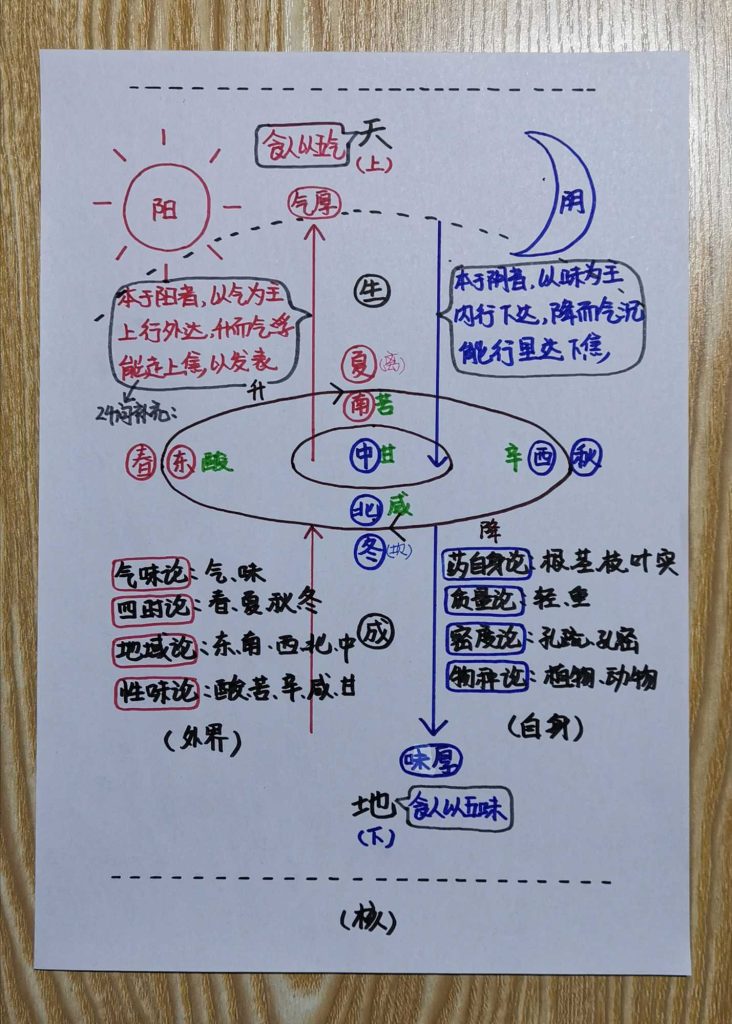 食人以五气
天
(上)
阳
气厚
阴
本于阳者,以气为主
上行外达,升而气浮
能走上焦,以发表
本于阴者,以味为主、
内行下达,降而气沉
能行里达下焦,
生
夏(离)
升
南苦
春 东 酸
中甘
辛 西 秋
北 咸
冬(坎)
降
气味论:气、味
四时论:春、夏、秋、冬
地域论:东、南、西、北、中
性味论:酸、苦、辛、咸、甘
(外界)
成
药自身论:根、茎、枝、叶、实
质量论:轻、重
密度论:孔疏、孔密
物种论:植物、动物
(自身)
味厚
地
食人以五味
(下)
(核)